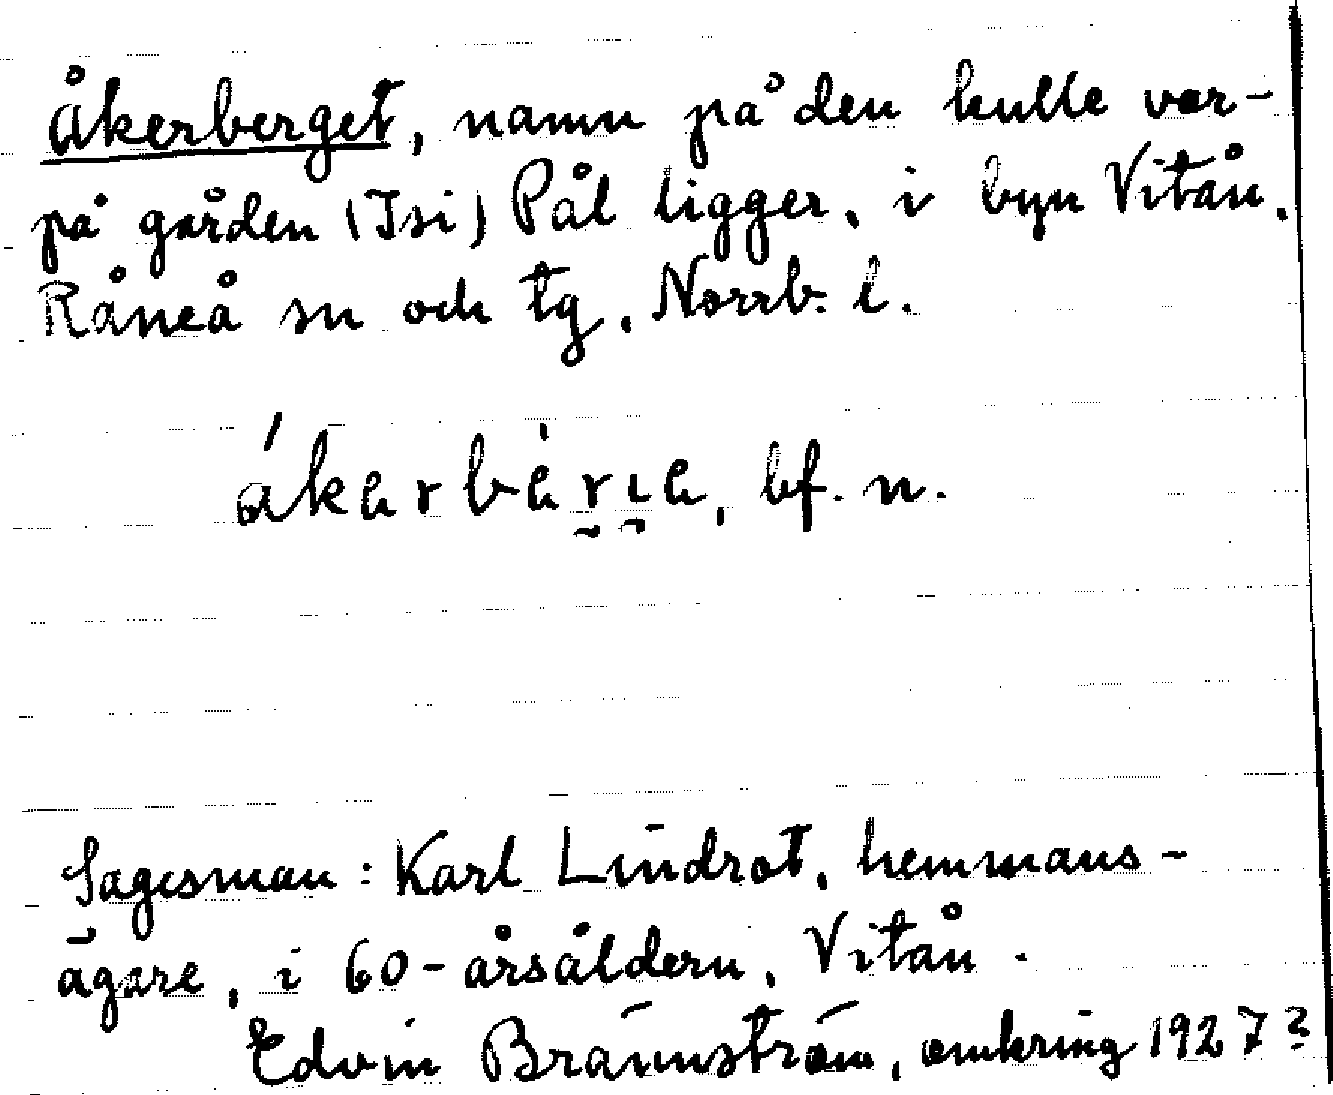 Åkerberget, namn på den kulle var-
på gården (Isi) Pål ligger, i byn Vitån,
Råneå sn och tg, Norrb. l.
bf. n.
Sagesman: Karl Lindrot, hemmans-
ägare, i 60-årsåldern, Vitån.
Edvin Brännström, omkring 1927?